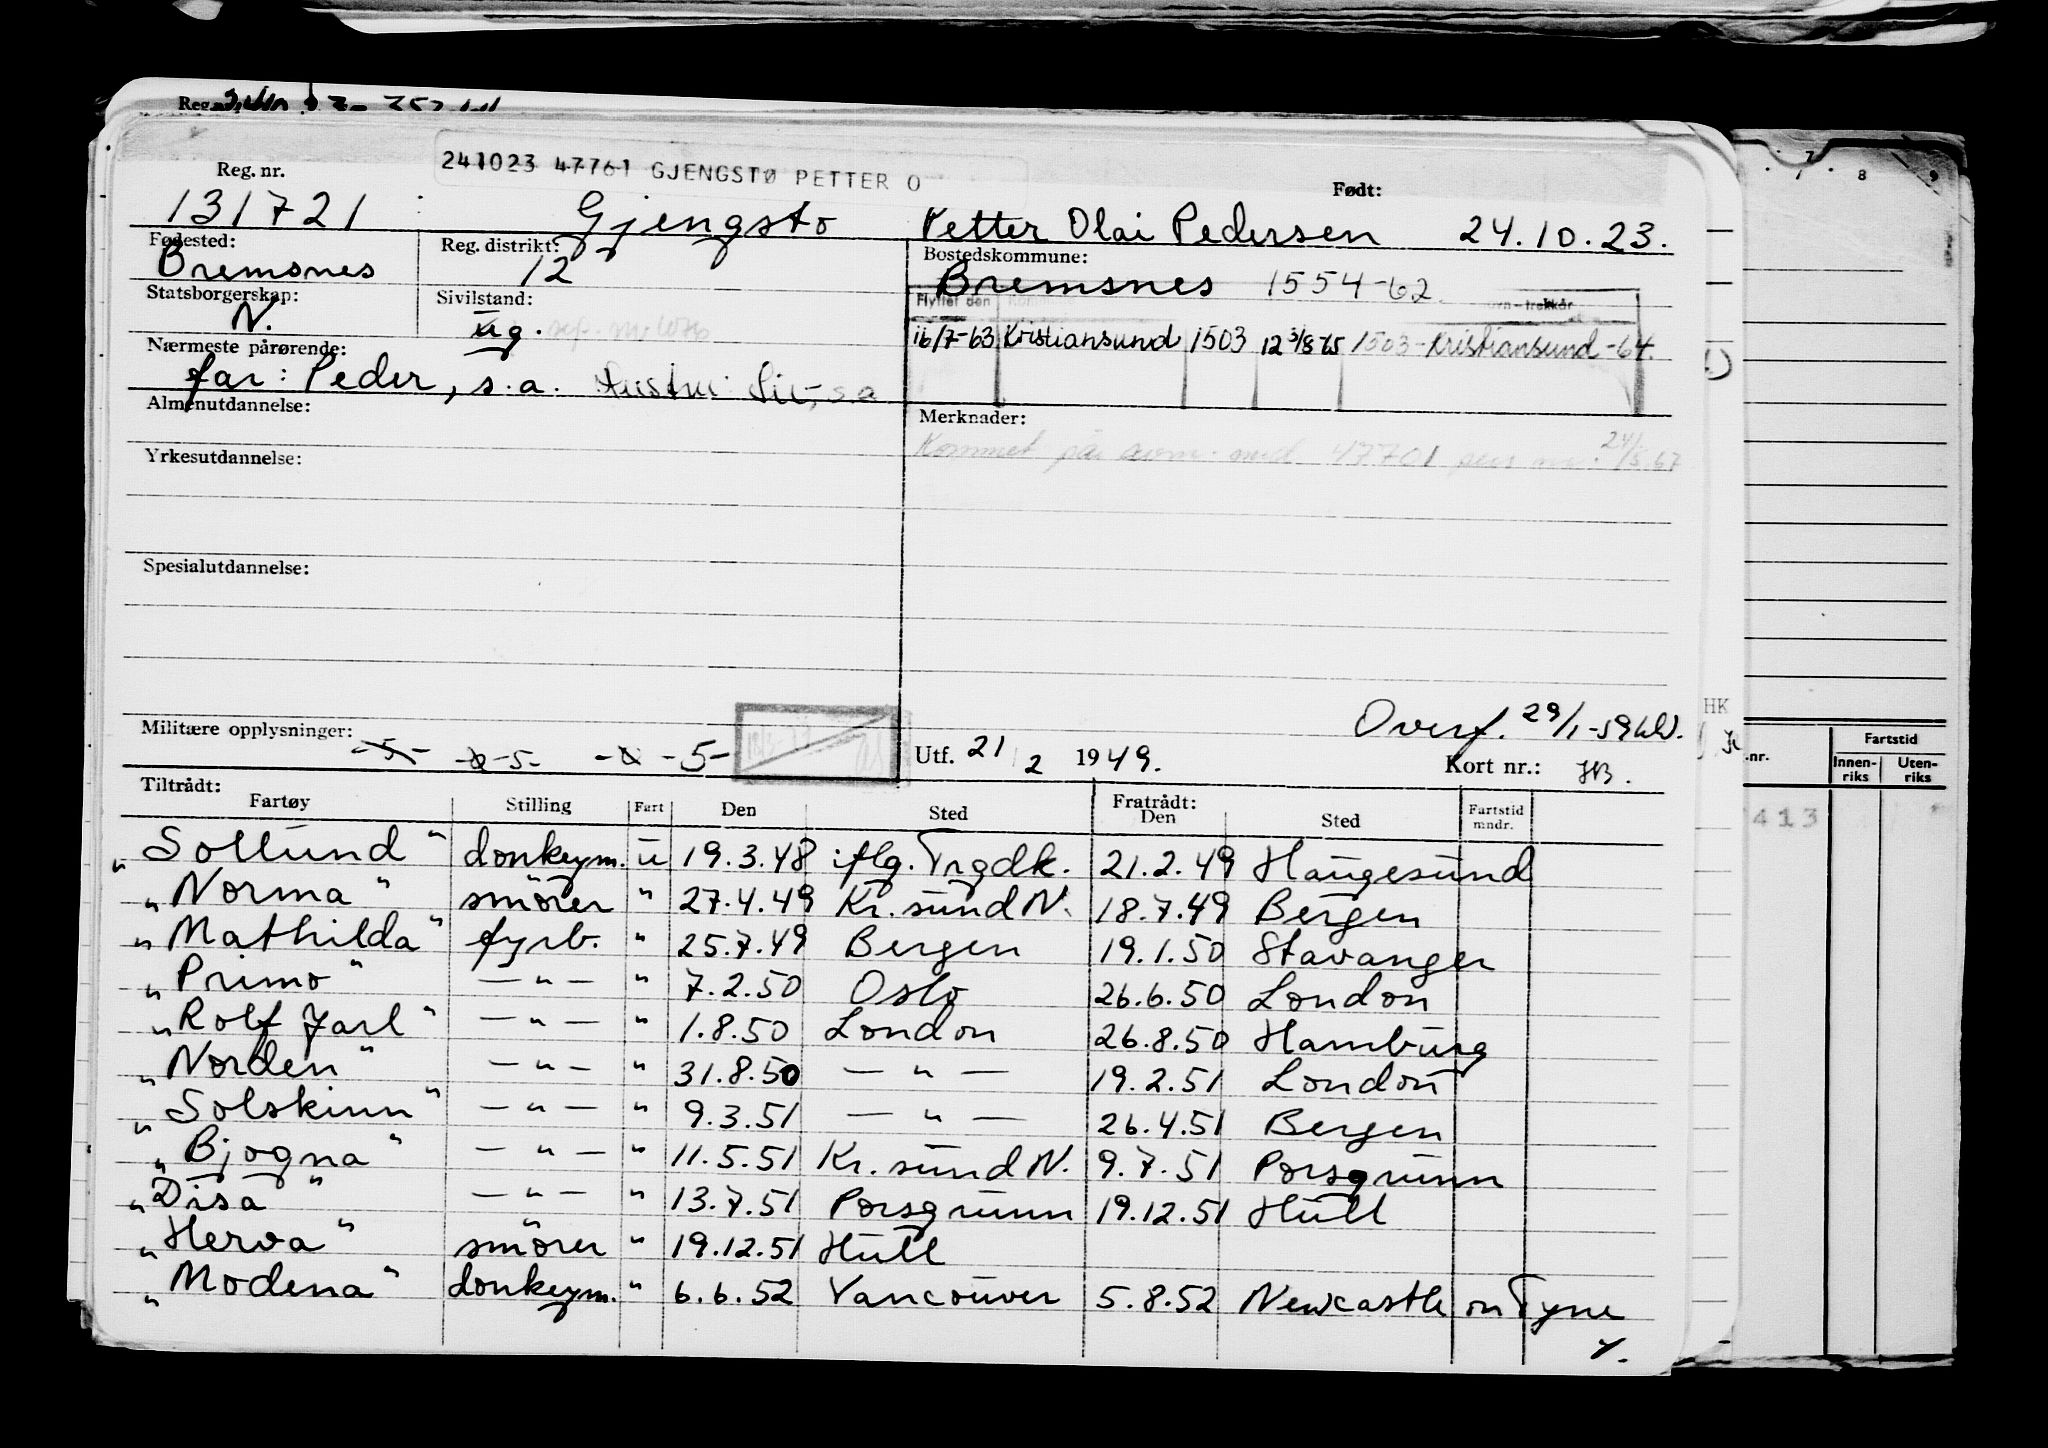 241023 47761 GJENGSTØ PETTER O
Reg. nr. Født:
131721 Gjengstø Petter Olai Pedersen 24.10.23.
Fødested: Reg. distrikt: Bostedskommune:
Bremsnes 12 Bremsnes 1554-62
Statsborgerskap: Sivilstand: Flyttet den
N. ug. 16/7-63 Kristiansund 1503 12 3/8 65 1503-Kristiansund-64.
Nærmeste pårørende:
far: Peder, s.a. Hustru: s.a
Almenutdannelse: Merknader:
Kommet på 47701 24/5.67
Yrkesutdannelse:
Spesialutdannelse:
Overf. 29/1-59
Militære opplysninger: -5- -5- -5- Utf. 21/2 1949. Kort nr.: HB.
Tiltrådt: Fratrådt:
Fartøy Stilling Fart Den Sted Den Sted Fartstid mndr.
"Sollund" donkeym. u 19.3.48 iflg. Trgdk. 21.2.49 Haugesund
"Norma" smører " 27.4.49 Kr.sund N. 18.7.49 Bergen
"Mathilda" fyrb. " 25.7.49 Bergen 19.1.50 Stavanger
"Primo" — " — " 7.2.50 Oslo 26.6.50 London
"Rolf Jarl" — " — " 1.8.50 London 26.8.50 Hamburg
"Norden" — " — " 31.8.50 — " — 19.2.51 London
"Solskinn" — " — " 9.3.51 — " — 26.4.51 Bergen
"Bjogna" — " — " 11.5.51 Kr.sund N. 9.7.51 Porsgrunn
"Disa" — " — " 13.7.51 Porsgrunn 19.12.51 Hull
"Herva" smører " 19.12.51 Hull
"Modena" donkeym. " 6.6.52 Vancouver 5.8.52 Newcastle on Tyne
HK
.nr. Fartstid
Innen-riks Uten-riks
413